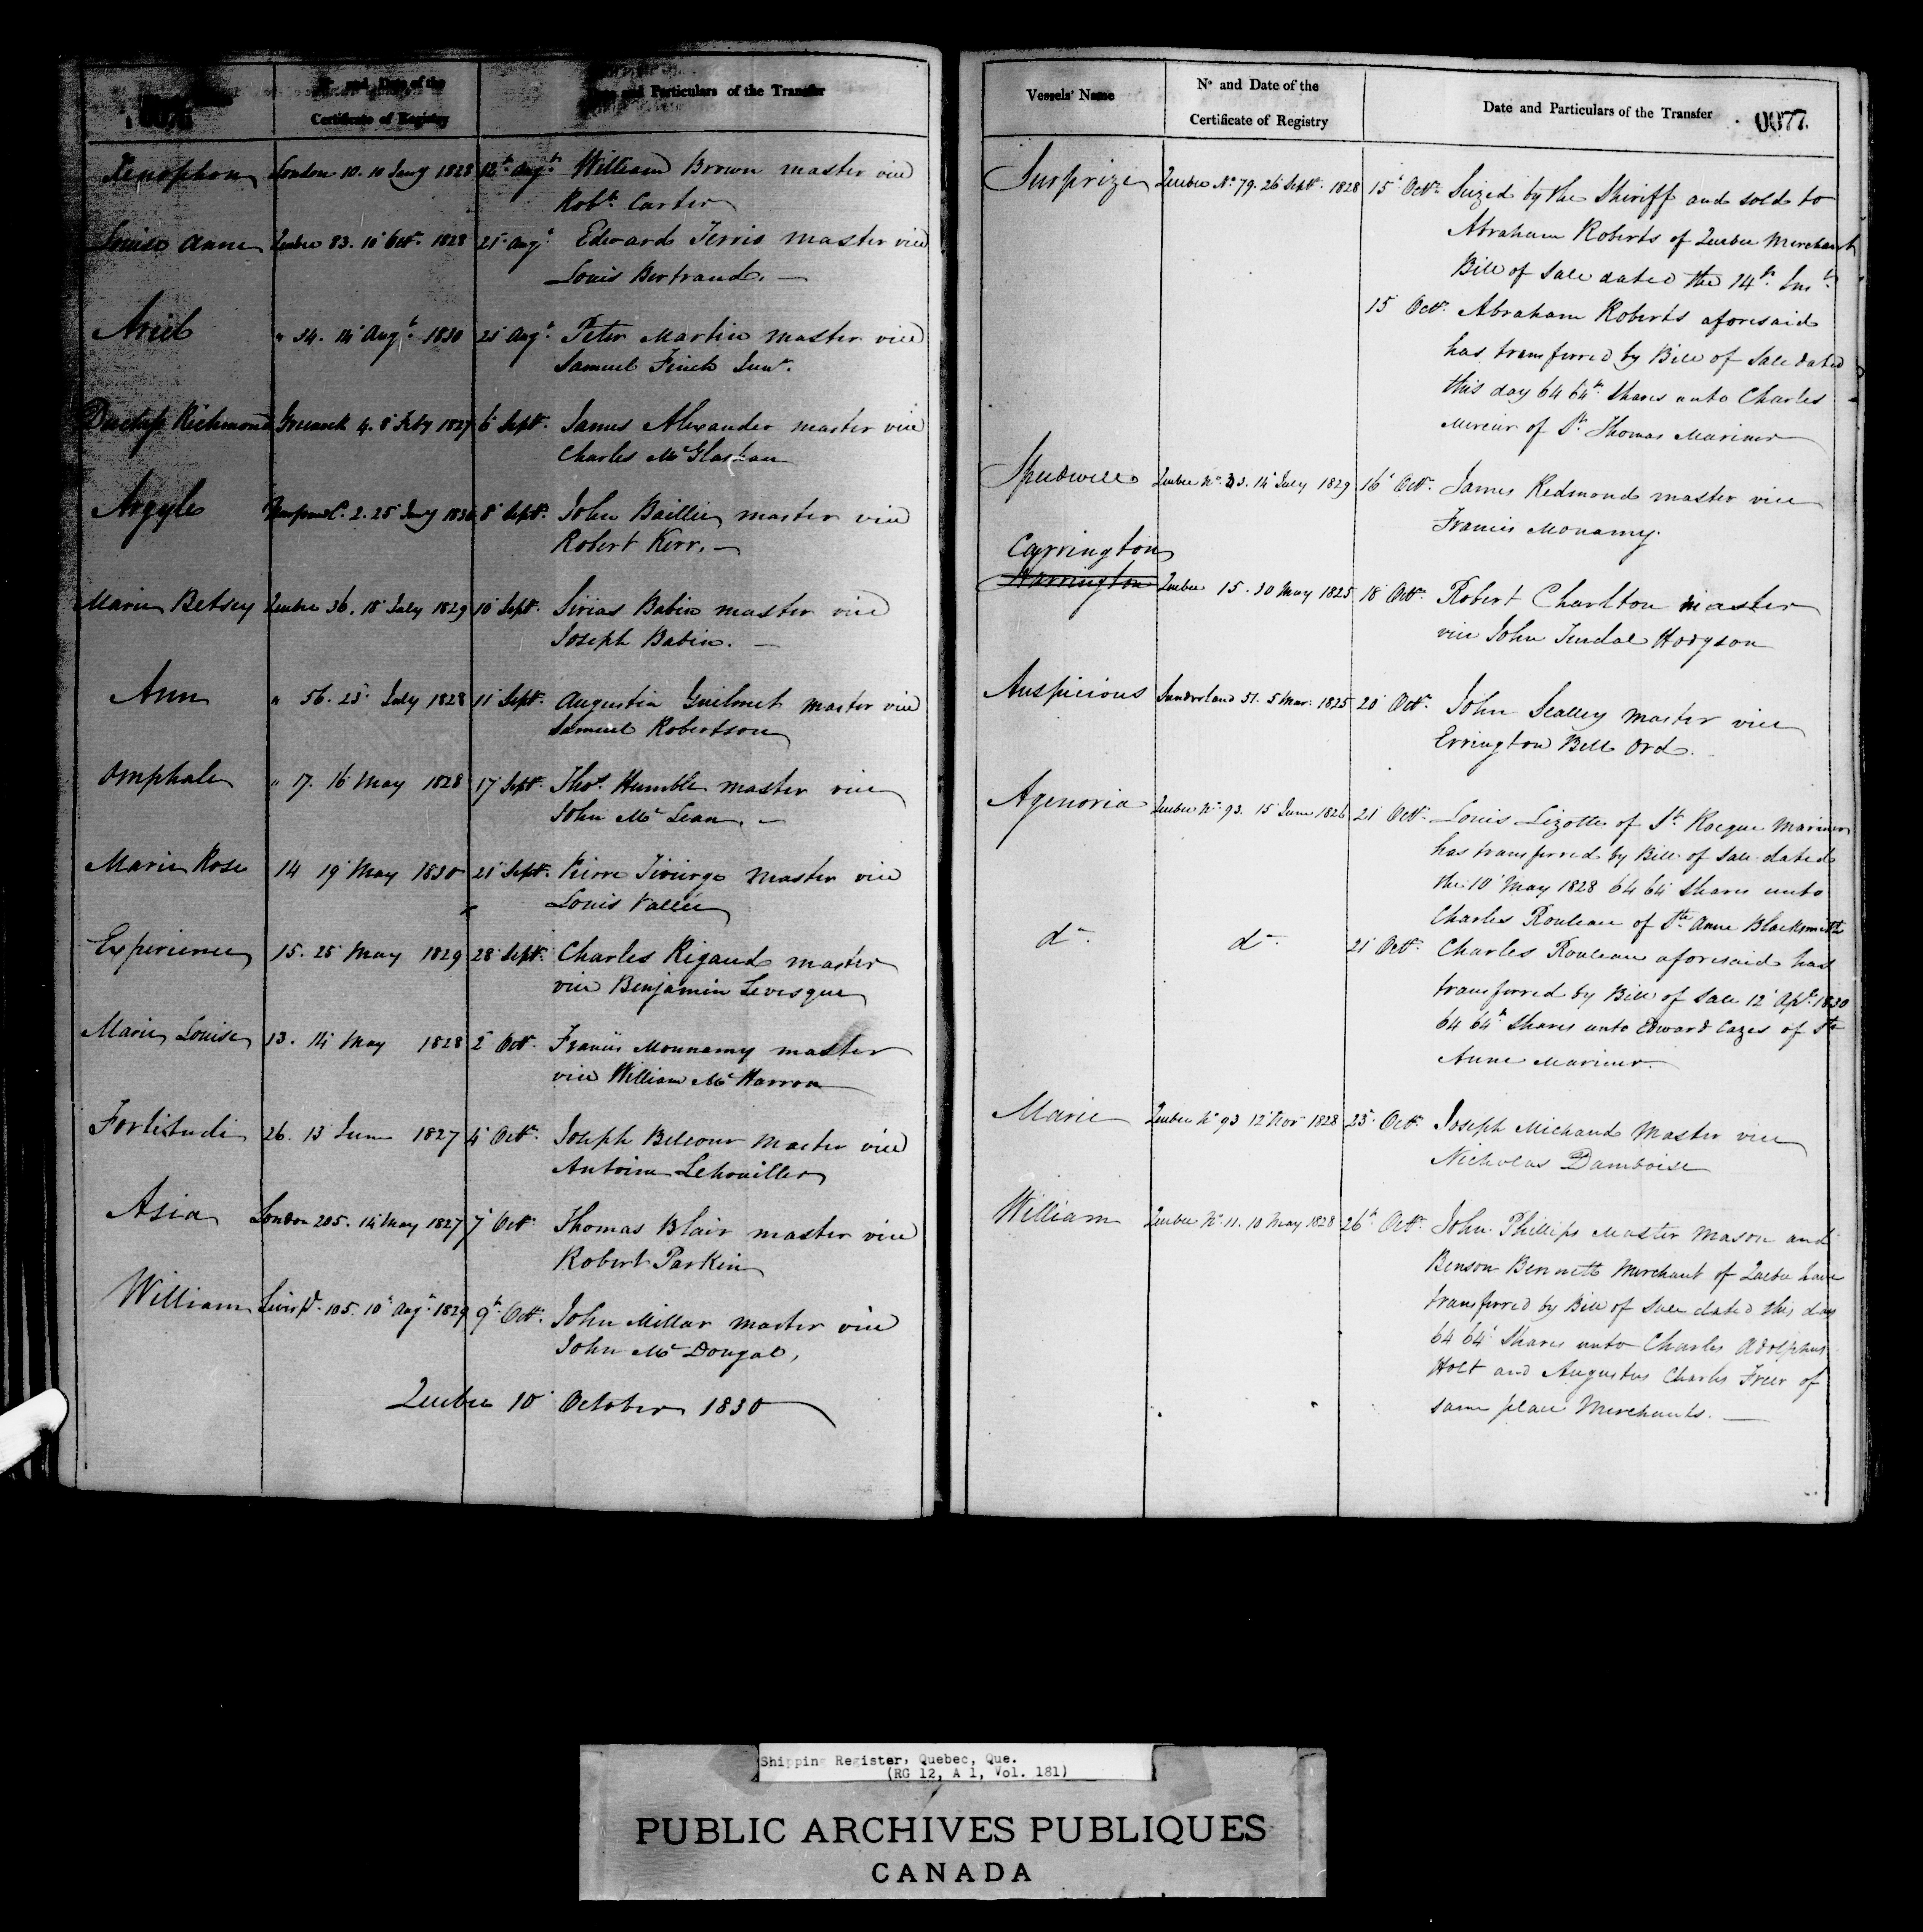 0076
No and Date of the
Certificate of Registry
Date and Particulars of the Transfer
Xenophon London 10. 10 Jany 1828 12th Augt William Brown master vice
Robt Carter
Louise Anne Quebec 83. 10 Octr 1828 21 Augt Edward Terrio master vice
Louis Bertrand. —
Ariel " 34. 14 Augt 1830 21 Augt Peter Martin master vice
Samuel Finch Junr.
Richmond Greenock 4. 8 Feby 1827 6 Septr James Alexander master vice
Charles McGlashan
Argyle 2. 25 Jany 1830 8 Septr John Baillie master vice
Robert Kerr. —
Marie Betsey Quebec 36. 18 July 1829 10 Septr Sirias Babin master vice
Joseph Babin. —
Ann " 56. 25 July 1828 11 Septr Augustin Guilmet master vice
Samuel Robertson
Omphale " 17. 16 May 1828 17 Septr Thos Humble master vice
John McLean. —
Marie Rose 14 19 May 1830 21 Septr Pierre Tivierge master vice
Louis Vallée
Experience 15. 25 May 1829 28 Septr Charles Rigaud master
vice Benjamin Levesque
Marie Louise 13. 14 May 1828 2 Octr Francis Mounamy master
vice William McHarron
Fortitude 26. 13 June 1827 4 Octr Joseph Belcour master vice
Antoine Lehouiller
Asia London 205. 14 May 1827 7 Octr Thomas Blair master vice
Robert Parkin
William Liverpl. 105. 10 Augt 1829 9th Octr. John Millar master vice
John McDougal,
Quebec 10 October 1830
Vessels' Name
No and Date of the
Certificate of Registry
Date and Particulars of the Transfer
0077
Surprize Quebec No 79. 26 Septr. 1828 15 Octr Seized by the Sheriff and sold to
Abraham Roberts of Quebec Merchant
Bill of Sale dated the 14th Inst
15 Octr Abraham Roberts aforesaid
has transferred by Bill of Sale dated
this day 64 64th Shares unto Charles
Mercier of St Thomas Mariner
Speedwell Quebec No 33. 14 July 1829 16 Octr. James Redmond master vice
Francis Monamy.
Carrington
Harrington Quebec 15. 30 May 1825 18 Octr Robert Charlton master
vice John Tindal Hodgson
Auspicious Sunderland 51. 5 Mar. 1825 20 Octr John Scalley master vice
Errington Bell Ord.
Agenoria Quebec No 93. 15 June 1826 21 Octr Louis Lizotte of St Rocque Mariner
has transferred by Bill of Sale dated
the 10 May 1828 64 64 Shares unto
Charles Rouleau of Ste Anne Blacksmith
do do 21 Octr Charles Rouleau aforesaid has
transferred by Bill of Sale 12 Apl. 1830
64 64th Shares unto Edward Cazes of Ste
Anne Mariner.
Marie Quebec No 93 12 Novr 1828 23 Octr Joseph Michaud Master vice
Nicholas Damboise
William Quebec No 11. 10 May 1828 26th Octr. John Phillips Master Mason and
Benson Bennett Merchant of Quebec have
transferred by Bill of Sale dated this day
64 64 Shares unto Charles Adolphus
Holt and Augustus Charles Freer of
same place Merchants. —
Shipping Register, Quebec, Que.
(RG 12, A 1, Vol. 181)
PUBLIC ARCHIVES PUBLIQUES
CANADA